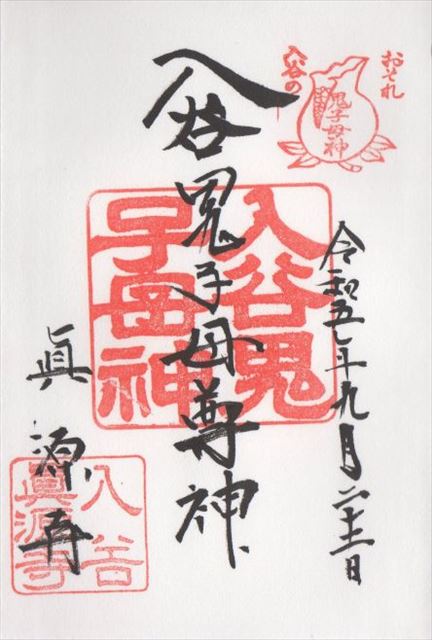 おそれ
入谷の
鬼子母神
令和五年九月二十三日
入谷鬼子母尊神
入谷鬼
子母神
眞源寺
入谷
眞源寺